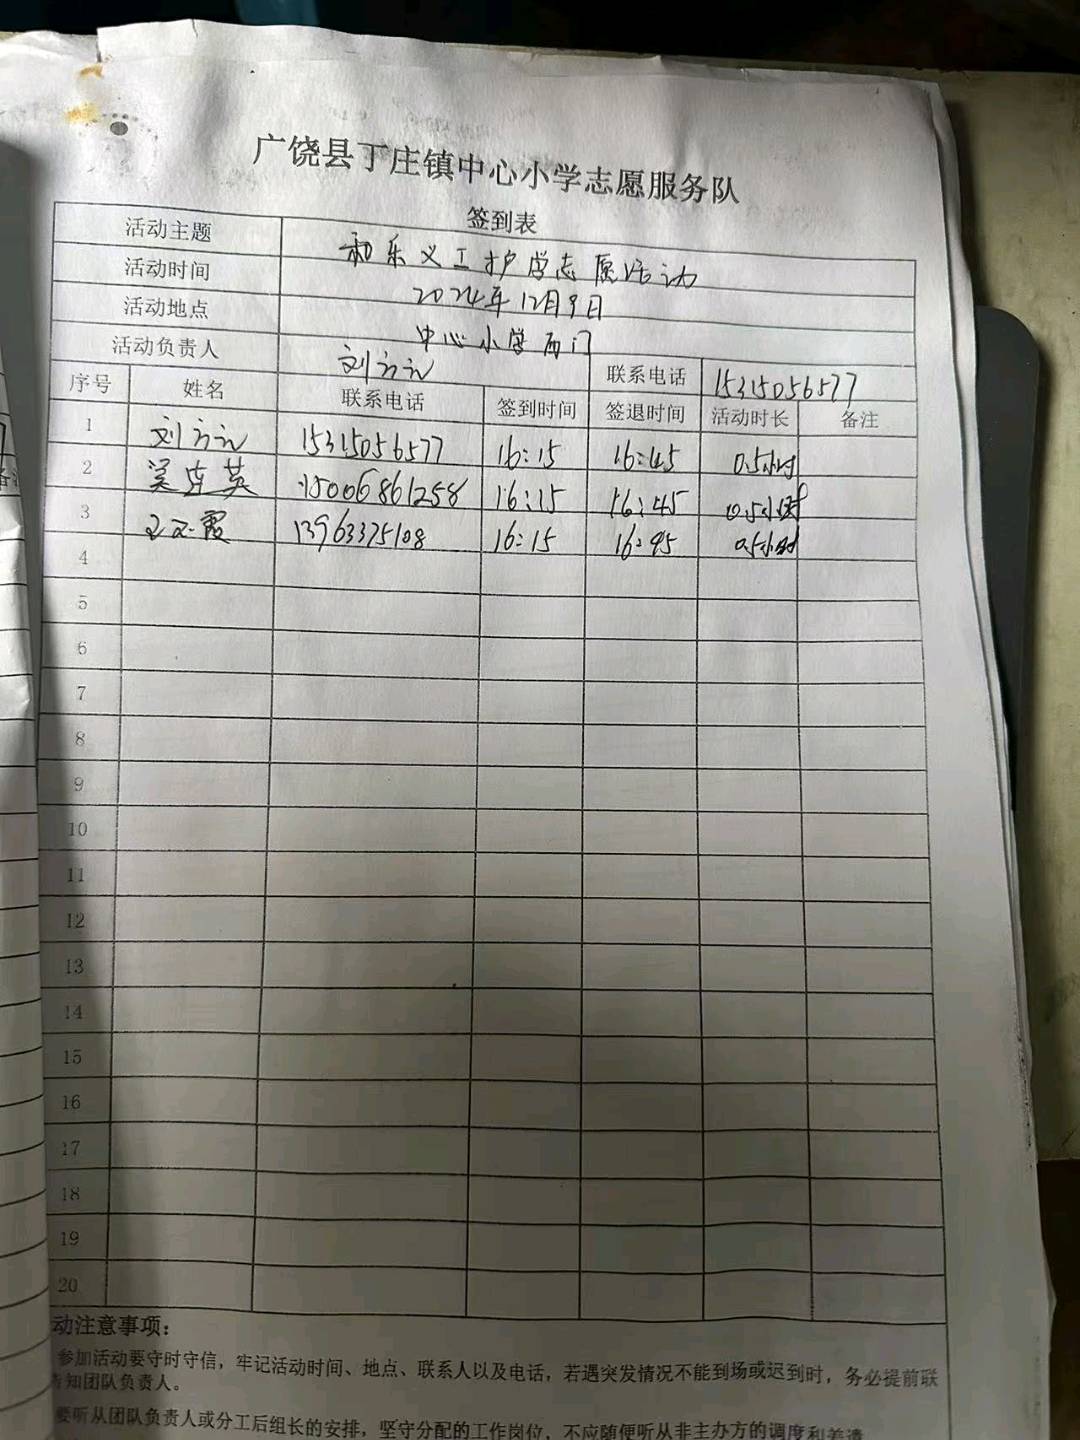 广饶县丁庄镇中心小学志愿服务队
签到表
活动主题 和乐义工护学志愿活动
活动时间 2024年12月9日
活动地点 中心小学西门
活动负责人 刘方元 联系电话 15315056577
序号 姓名 联系电话 签到时间 签退时间 活动时长 备注
1 刘方元 15315056577 16:15 16:45 0.5小时
2 吴连英 15006861258 16:15 16:45 0.5小时
3 王玉霞 13963375108 16:15 16:45 0.5小时
4
5
6
7
8
9
10
11
12
13
14
15
16
17
18
19
20
动注意事项：
参加活动要守时守信，牢记活动时间、地点、联系人以及电话，若遇突发情况不能到场或迟到时，务必提前联
告知团队负责人。
要听从团队负责人或分工后组长的安排，坚守分配的工作岗位，不应随便听从非主办方的调度和差遣